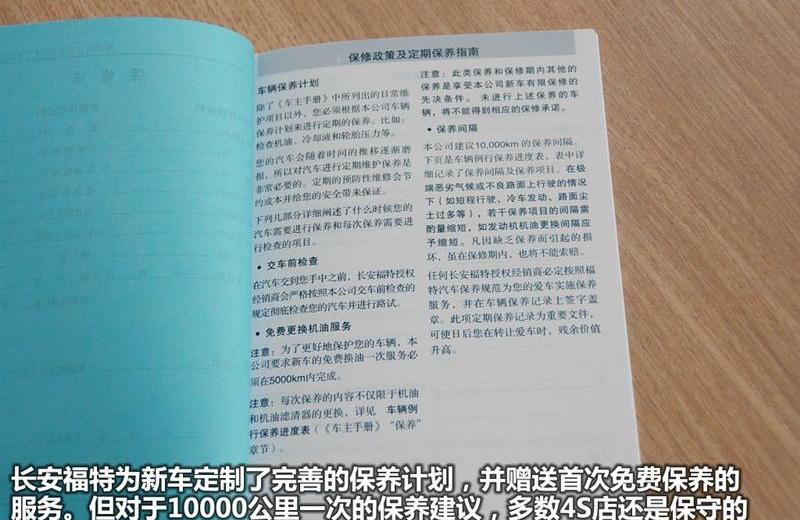 保修政策及定期保养指南
车辆保养计划
除了《车主手册》中所列出的日常维
护项目以外，您必须根据本公司车辆
保养计划来进行定期的保养。比如：
检查机油、冷却液和轮胎压力等。
您的汽车会随着时间的推移逐渐磨
损，所以对汽车进行定期维护保养是
非常必要的。定期的预防性维修会节
约成本并给您的安全带来保证。
下列几部分详细阐述了什么时候您的
汽车需要进行保养和每次保养需要进
行检查的项目。
• 交车前检查
在汽车交到您手中之前，长安福特授权
经销商会严格按照本公司交车前检查的
规定彻底检查您的汽车并进行路试。
• 免费更换机油服务
注意：为了更好地保护您的车辆，本
公司要求新车的免费换油一次服务必
须在5000km内完成。
注意：每次保养的内容不仅限于机油
和机油滤清器的更换，详见 车辆例
行保养进度表（《车主手册》“保养”
章节）。
注意：此类保养和保修期内其他的
保养是享受本公司新车有限保修的
先决条件。 未进行上述保养的车
辆，将不能得到相应的保修承诺。
• 保养间隔
本公司建议10,000km 的保养间隔。
下页是车辆例行保养进度表，表中详
细记录了保养间隔及保养项目。在极
端恶劣气候或不良路面上行驶的情况
下（如短程行驶、冷车发动、路面尘
土过多等），若干保养项目的间隔需
酌量缩短，如发动机机油更换间隔应
予缩短。凡因缺乏保养而引起的损
坏，虽在保修期内，也将不能索赔。
任何长安福特授权经销商必定按照福
特汽车保养规范为您的爱车实施保养
服务，并在车辆保养记录上签字盖
章。此项定期保养记录为重要文件，
可使日后您在转让爱车时，残余价值
升高。
长安福特为新车定制了完善的保养计划，并赠送首次免费保养的
服务。但对于10000公里一次的保养建议，多数4S店还是保守的